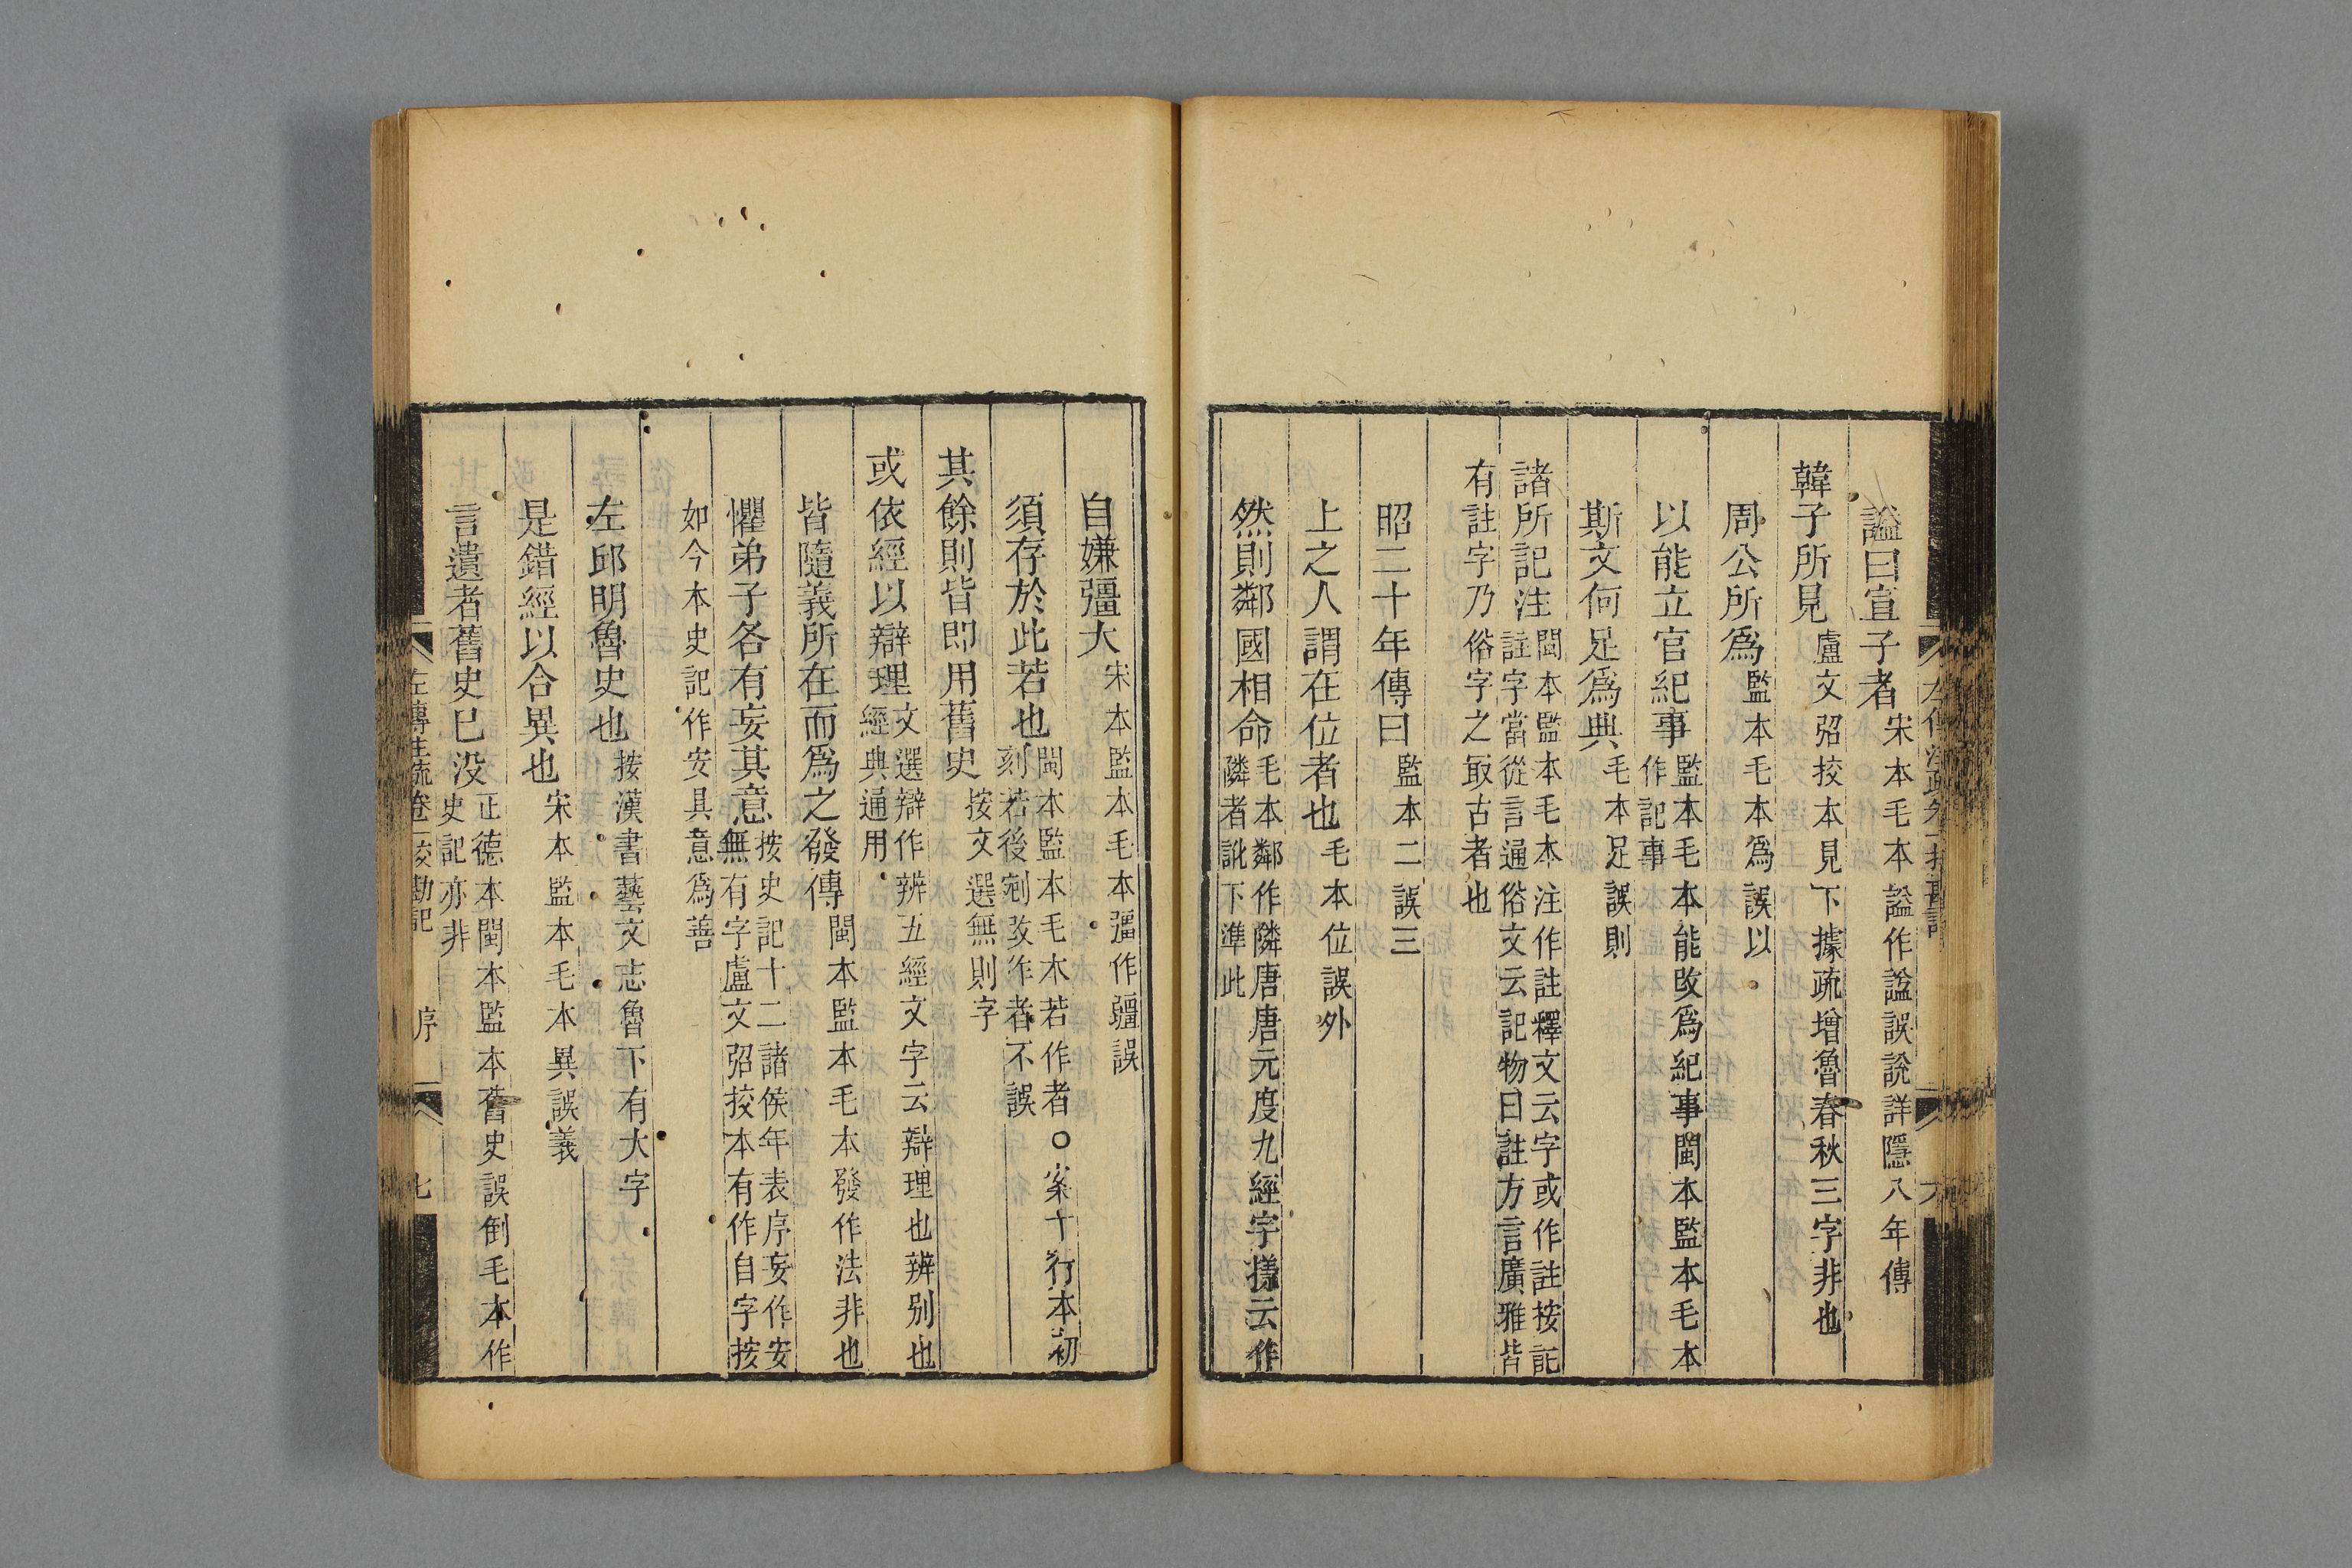 謚曰宣子者宋本毛本謚作諡誤說詳隱八年傳
韓子所見盧文弨挍本見下據疏增魯春秋三字非也
周公所爲監本毛本爲誤以
以能立官紀事監本毛本能改爲紀事閩本監本毛本
作記事
斯文何足爲典毛本足誤則
諸所記注閩本監本毛本注作註釋文云字或作註按記
註字當從言通俗文云記物曰註方言廣雅皆
有註字乃俗字之最古者也
昭二十年傳曰監本二誤三
上之人謂在位者也毛本位誤外
然則鄰國相命毛本鄰作隣唐唐元度九經字㨾云作
隣者訛下準此
自嫌彊大宋本監本毛本彊作疆誤
須存於此若也閩本監本毛本若作者○案十行本初
刻若後剜改作者不誤
其餘則皆即用舊史按文選無則字
或依經以辯理文選辯作辨五經文字云辯理也辨別也
經典通用
皆隨義所在而爲之發傳閩本監本毛本發作法非也
懼弟子各有妄其意按史記十二諸侯年表序妄作安
無有字盧文弨挍本有作自字按
如今本史記作安具意爲善
左邱明魯史也按漢書藝文志魯下有大字
是錯經以合異也宋本監本毛本異誤義
言遺者舊史已没正德本閩本監本舊史誤倒毛本作
史記亦非
左傳注疏卷一校勘記 序 七